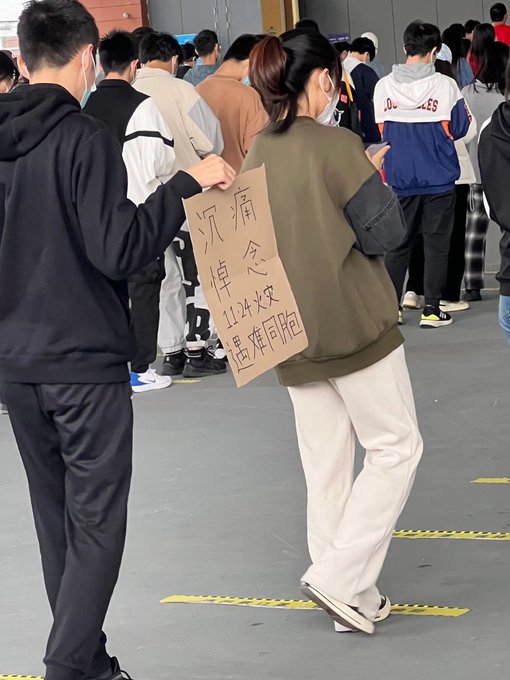 沉痛
悼念
11.24火灾
遇难同胞
LOS ANGELES